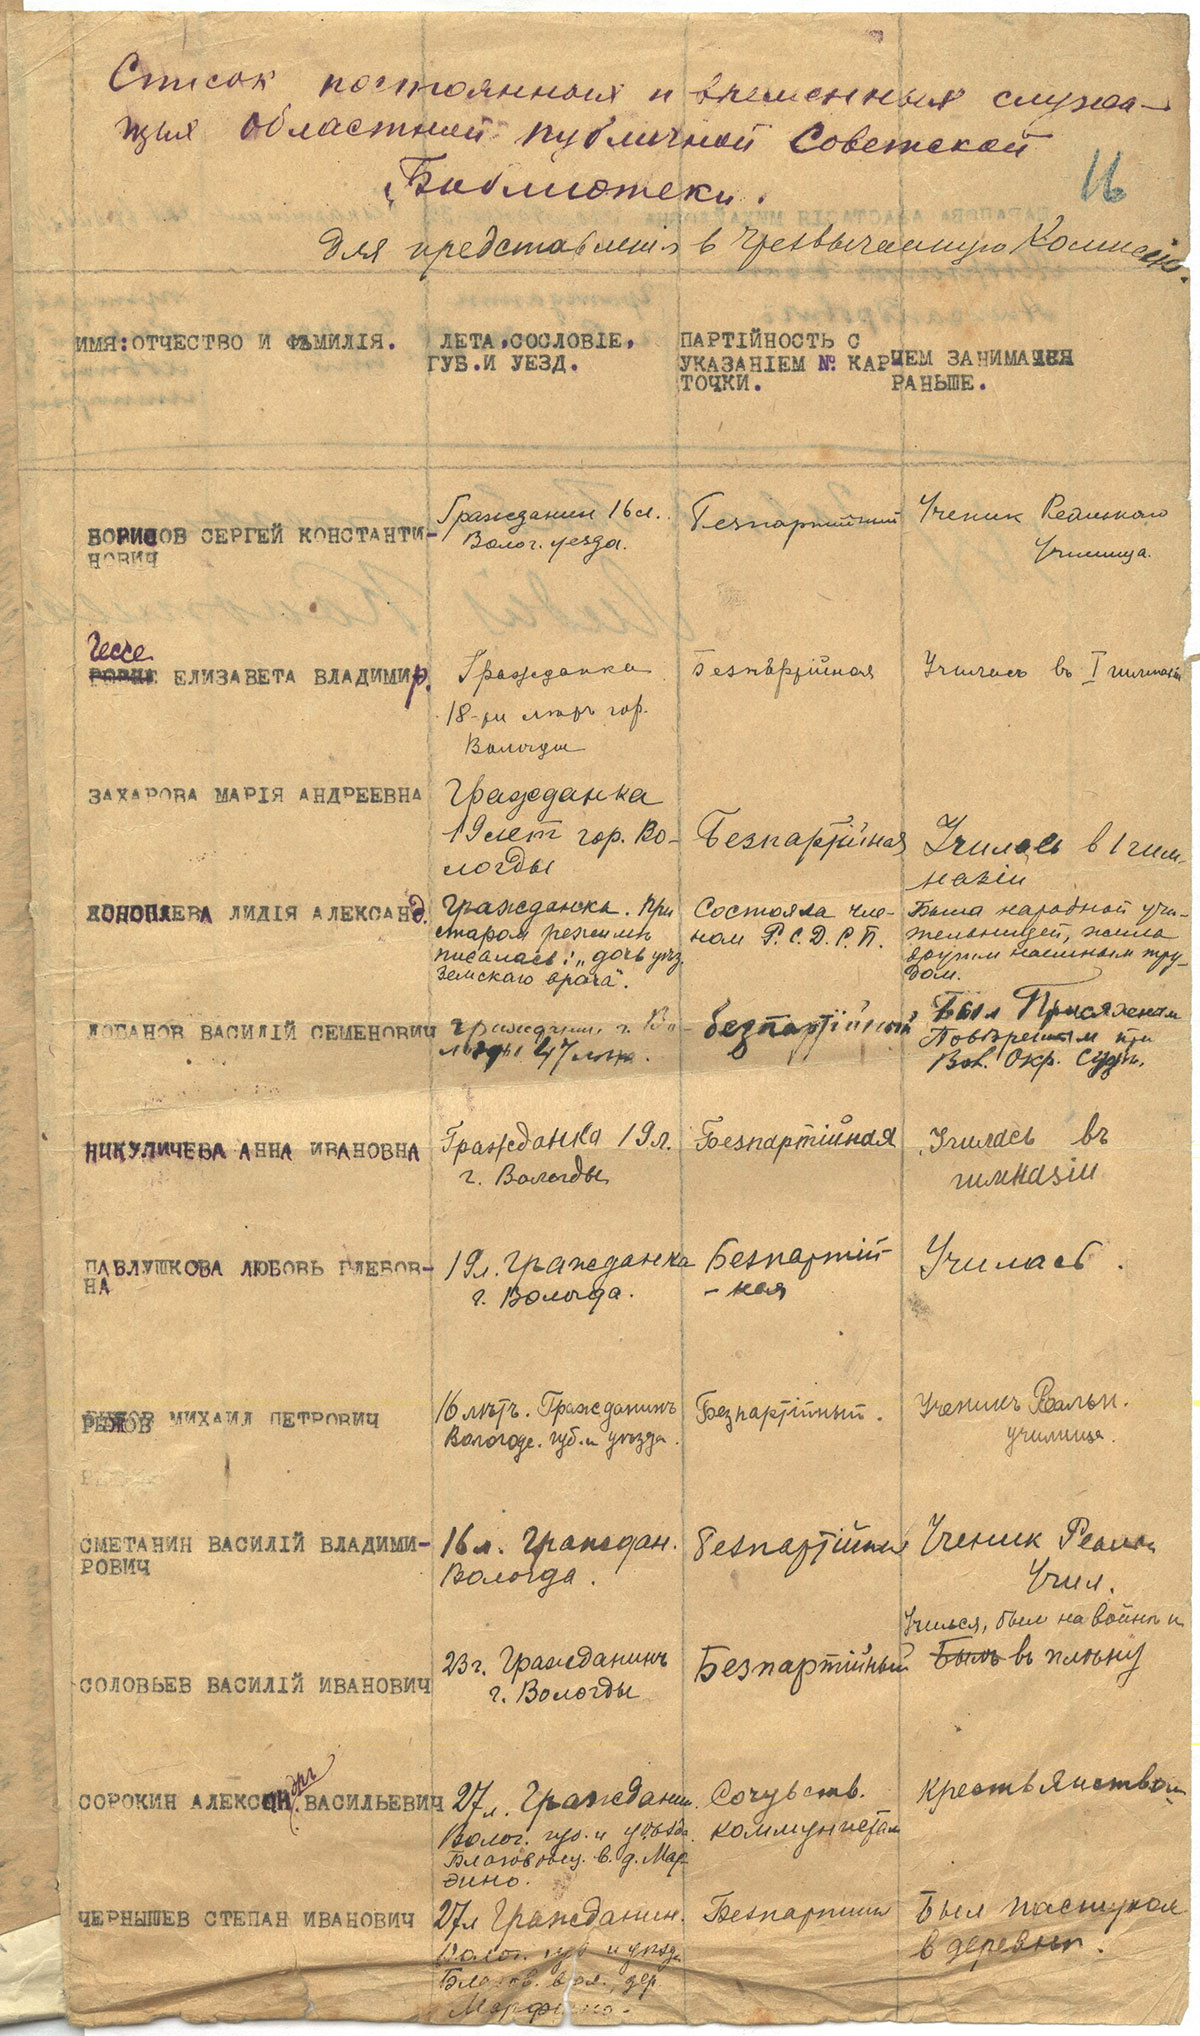 Список постоянных и временных служа-
щих Областной публичной Советской
Библиотеки.
для представленія в Чрезвычайную Комиссію.
16
ИМЯ:ОТЧЕСТВО И ФАМИЛІЯ.
ЛЕТА,СОСЛОВІЕ,
ГУБ.И УЕЗД.
ПАРТІЙНОСТЬ С
УКАЗАНІЕМ № КАР
ТОЧКИ.
ЧЕМ ЗАНИМАЛСЯ
РАНЬШЕ.
БОРИСОВ СЕРГЕЙ КОНСТАНТИ-
НОВИЧ
Гражданин 16 л.
Волог. уезда.
Безпартийный
Ученик Реального
Училища.
Гессе
ЕЛИЗАВЕТА ВЛАДИМИР.
Гражданка
18-ти лѣтъ гор.
Вологды
Безпартійная
Училась въ I гимназіи
ЗАХАРОВА МАРІЯ АНДРЕЕВНА
Гражданка
19 лет гор. Во-
логды
Безпартійная
Училась в 1 гим-
назіи
КОНОПЛЕВА ЛИДІЯ АЛЕКСАНД.
Гражданка. При
старом режимѣ
писалась: „дочь уѣзд.
земскаго врача".
Состояла чле-
ном Р.С.Д.Р.П.
Была народной учи-
тельницей, жила
другим наемным тру-
дом.
ЛОБАНОВ ВАСИЛІЙ СЕМЕНОВИЧ
гражданин г. Во-
логды 47 лѣт.
безпартійный
Был Присяжным
Повѣренным при
Вол. Окр. Судѣ.
НИКУЛИЧЕВА АННА ИВАНОВНА
Гражданка 19 л.
г. Вологды
Безпартійная
Училась въ
гимназіи
ПАВЛУШКОВА ЛЮБОВЬ ГЛЕБОВ-
НА
19 л. Гражданка
г. Вологда.
Безпартій
-ная
Училась.
РЫЖОВ МИХАИЛ ПЕТРОВИЧ
16 лѣтъ. Гражданинъ
Вологодс. губ. и уѣзда.
Безпартійный.
Ученикъ Реальн.
училища.
СМЕТАНИН ВАСИЛІЙ ВЛАДИМИ-
РОВИЧ
16 л. Граждан.
Вологда.
Безпартійный
Ученик Реальн
Учил.
СОЛОВЬЕВ ВАСИЛІЙ ИВАНОВИЧ
23 г. Гражданинъ
г. Вологды
Безпартійный
Учился, был на войнѣ и
Былъ въ плѣну
СОРОКИН АЛЕКСАНДРЪ ВАСИЛЬЕВИЧ
27 л. Гражданин.
Волог. губ. и уѣзда.
Благовѣщ. в. д. Мар-
фино.
Сочувств.
коммунистам
крестьянством
ЧЕРНЫШЕВ СТЕПАН ИВАНОВИЧ
27 л Гражданин.
Волог. губ и уѣзда
Благов. вол., дер
Марфино.
Безпартийн
Был пастухом
в деревнѣ.